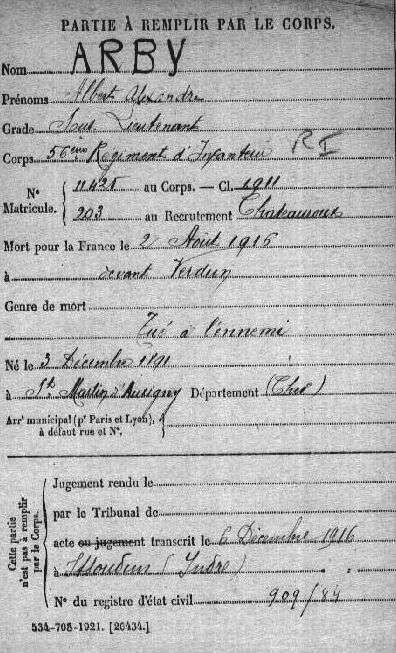 PARTIE À REMPLIR PAR LE CORPS.
Nom ARBY
Prénoms Albert Alexandre
Grade Sous Lieutenant
Corps 56eme Régiment d'Infanterie RI
N° Matricule. { 11431 au Corps. — Cl. 1911
203 au Recrutement Chateauroux
Mort pour la France le 2 Août 1916
à devant Verdun
Genre de mort
Tué à l'ennemi
Né le 3 Décembre 1891
à St Martin d'Auxigny Département (Cher)
Arrt municipal (pr Paris et Lyon), à défaut rue et N°.
Cette partie n'est pas à remplir par le Corps.
Jugement rendu le
par le Tribunal de
acte ou jugement transcrit le 6 Décembre 1916
à Issoudun (Indre)
N° du registre d'état civil 909/84
534-708-1921. [26434.]